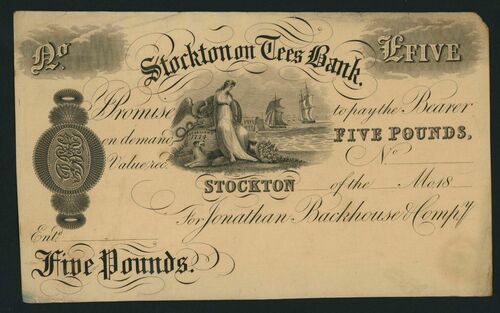 No.
Stockton on Tees Bank.
£FIVE
Promise to pay the Bearer
on demand FIVE POUNDS,
Value rec.d No
STOCKTON of the Mo 18
For Jonathan Backhouse & Compy
Entd
Five Pounds.